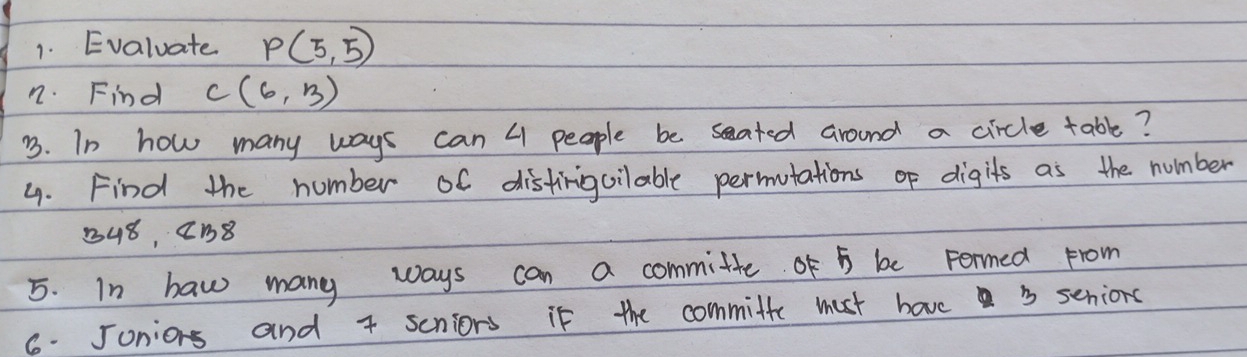 1. Evaluate P(5,5)
2. Find C(6,3)
3. In how many ways can 4 people be seated around a circle table?
4. Find the number of distiriguilable permutations of digits as the number
348, 838
5. In haw many ways can a committe of 5 be formed from
6. Juniors and 7 seniors if the committe must have 3 seniors